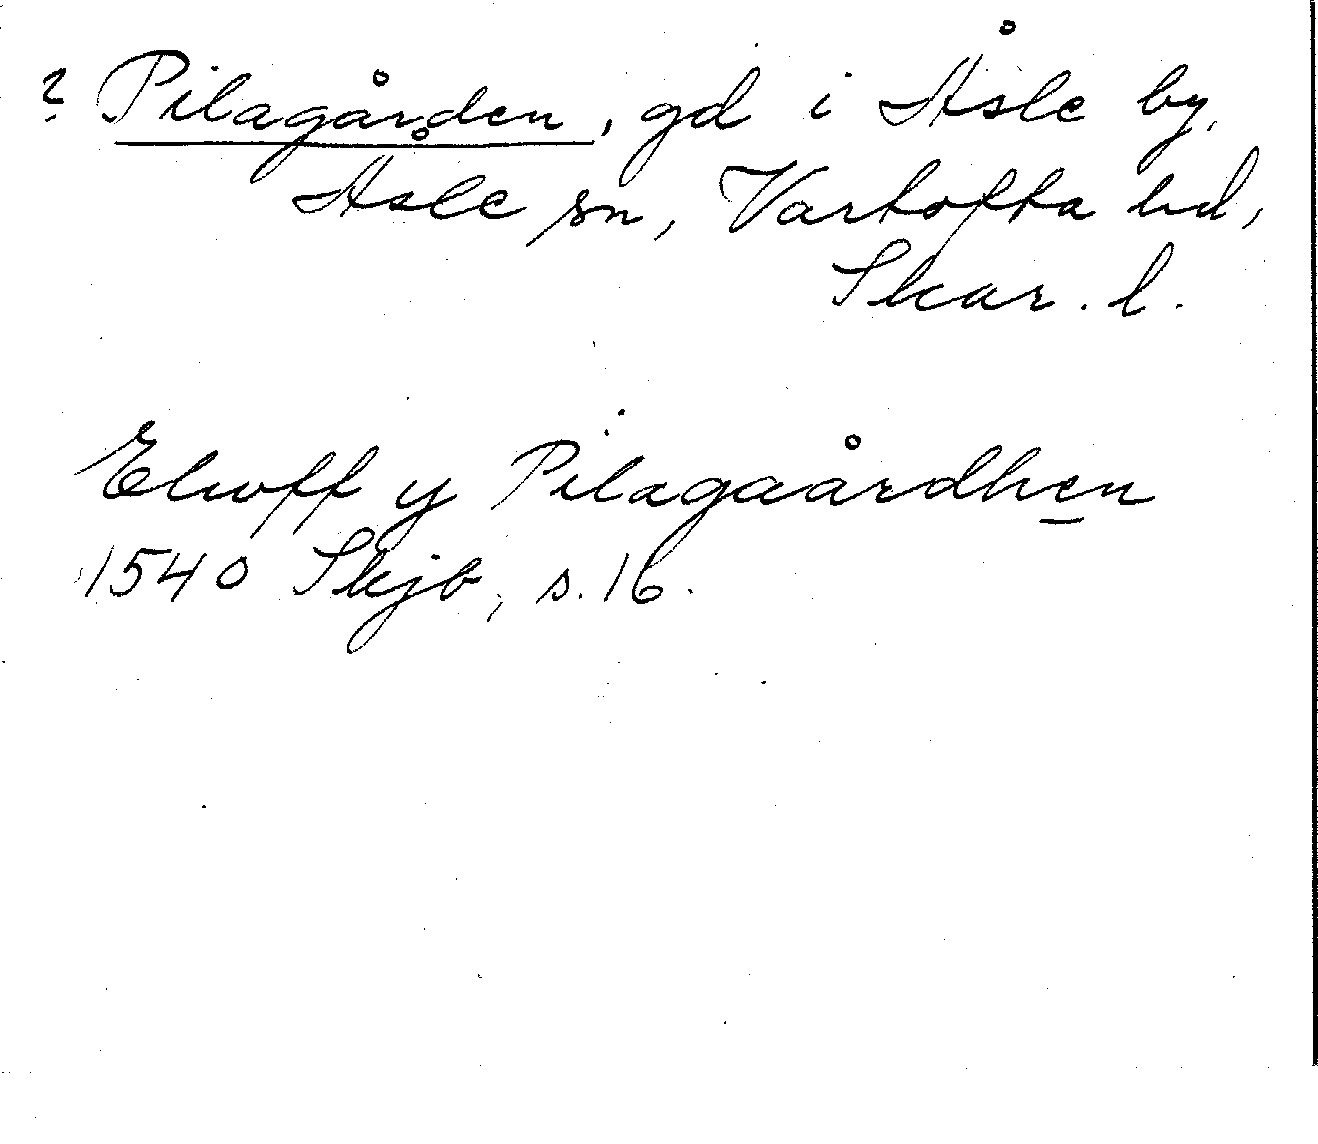 ? Pilagården, gd i Åsle by,
Åsle sn, Vartofta hd,
Skar. l.
Elwoff y Pilagaårdhen
1540 Skjb, s. 16.